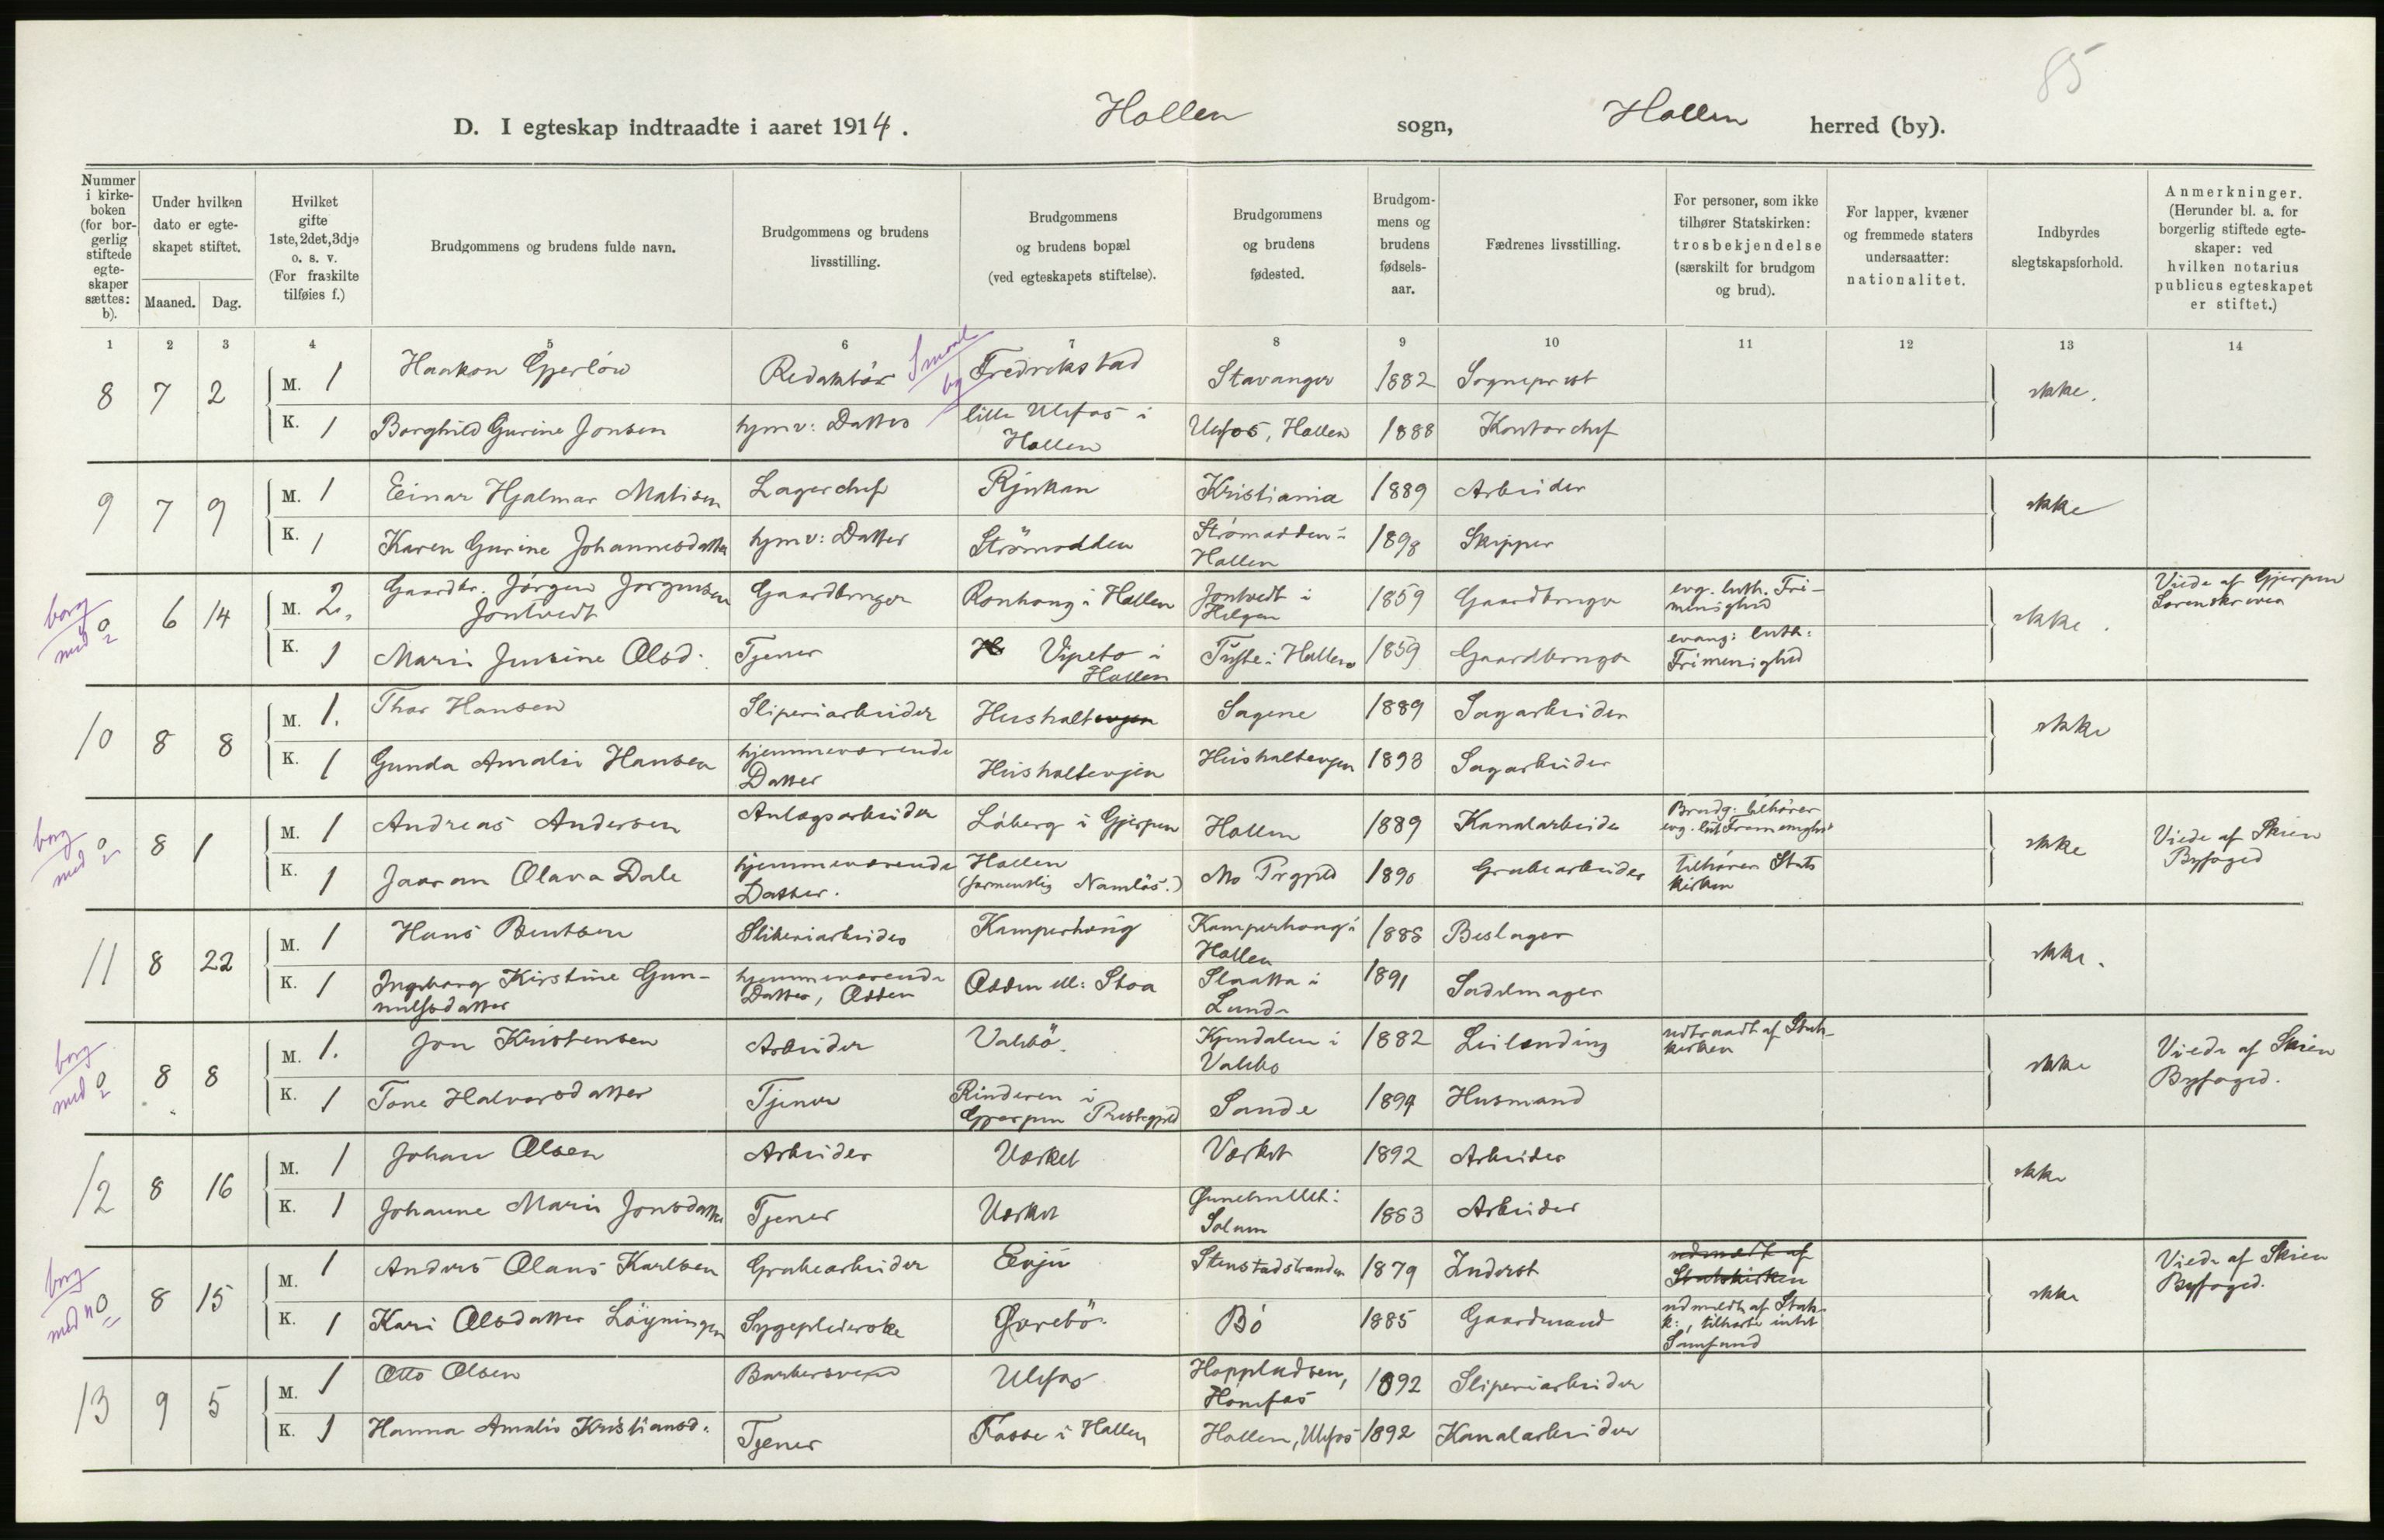 85
D. I egteskap indtraadte i aaret 1914. Hollen sogn, Hollen herred (by).
Nummer i kirkeboken (for borgerlig stiftede egteskaper sættes: b).
Under hvilken dato er egteskapet stiftet.
Maaned. Dag.
Hvilket gifte 1ste, 2det, 3dje o. s. v. (For fraskilte tilføies f.)
Brudgommens og brudens fulde navn.
Brudgommens og brudens livsstilling.
Brudgommens og brudens bopæl (ved egteskapets stiftelse).
Brudgommens og brudens fødested.
Brudgommens og brudens fødselsaar.
Fædrenes livsstilling.
For personer, som ikke tilhører Statskirken: trosbekjendelse (særskilt for brudgom og brud).
For lapper, kvæner og fremmede staters undersaatter: nationalitet.
Indbyrdes slegtskapsforhold.
Anmerkninger. (Herunder bl. a. for borgerlig stiftede egteskaper: ved hvilken notarius publicus egteskapet er stiftet.)
1 2 3 4 5 6 7 8 9 10 11 12 13 14
8 7 2 M. 1 Haakon Gjerløw Redaktör Fredrikstad Stavanger 1882 Sogneprest ikke.
K. 1 Borghild Gurine Jonsen hjmv: Datter lille Ulefos i Hollen Ulefos, Hollen 1888 Kontorchef
9 7 9 M. 1 Einar Hjalmar Matisen Lagerchef Rjukan Kristiania 1889 Arbeider ikke
K. 1 Karen Gurine Johannesdatter hjmv: Datter Strömodden Strömodden i Hollen 1898 Skipper
borg med 0 6 14 M. 2. Gaardbr. Jörgen Jörgensen Jontvedt Gaardbruger Ronhoug i Hollen Jontvedt i Helgen 1859 Gaardbruger evg. luth. Frimenighed ikke. Viede af Gjerpen Sorenskriver
K. 1 Maren Jursine Olsd. Tjener Vipeto i Hollen Tufte i Hollen 1859 Gaardbruger evang: luth: Frimenighed
10 8 8 M. 1. Thor Hansen Sliperiarbeider Husholtevjen Sagene 1889 Sagarbeider ikke
K. 1 Gunda Amalie Hansen hjemmeværende Datter Husholtevjen Husholtevjen 1893 Sagarbeider
borg med 0 8 1 M. 1 Andreas Andersen Anlægsarbeider Låberg i Gjerpen Hollen 1889 Kanalarbeider Brudg: tilhører evg. lut Frimenighed ikke Viede af Skien Byfoged
K. 1 Jaaran Olava Dale hjemmeværende Datter. Hollen (formentlig Namlös.) Mo Prgjeld 1890 Grubearbeider tilhører Statskirken
11 8 22 M. 1 Hans Bentsen Sliperiarbeider Kamperhoug Kamperhoug i Hollen 1888 Beslager ikke.
K. 1 Ingeborg Kirstine Gunnulfsdatter hjemmeværende Datter, Odden Odden ell: Stoa Slaatta i Lunde 1891 Sadelmager
borg med 0 8 8 M. 1. Jon Kristensen Arbeider Valebö. Kjendalen i Valebø 1882 Leilending udtraadt af Statskirken ikke Viede af Skien Byfoged.
K. 1 Tone Halvorsdatter Tjener Rinderen i Gjerpen Prestegjeld Sande 1894 Husmand
12 8 16 M. 1 Johan Olsen Arbeider Værket Værket 1892 Arbeider ikke
K. 1 Johanne Marie Jonsdatter Tjener Værket Solum 1883 Arbeider
borg med 0 8 15 M. 1 Anders Olaus Karlsen Grubearbeider Evju Stenstadstranden 1879 Inderst udmeldt af Statskirken ikke Viede af Skien Byfoged.
K. 1 Kari Olsdatter Löyningen Sygepleierske Gvrebö Bö 1885 Gaardmand udmeldt af Statsk:, tilhører intet Samfund
13 9 5 M. 1 Otto Olsen Barbersvend Ulefos Hoppladsen, Hönefos 1892 Sliperiarbeider
K. 1 Hanna Amalie Kristiansd. Tjener Fasse i Hollen Hollen, Ulefos 1892 Kanalarbeider